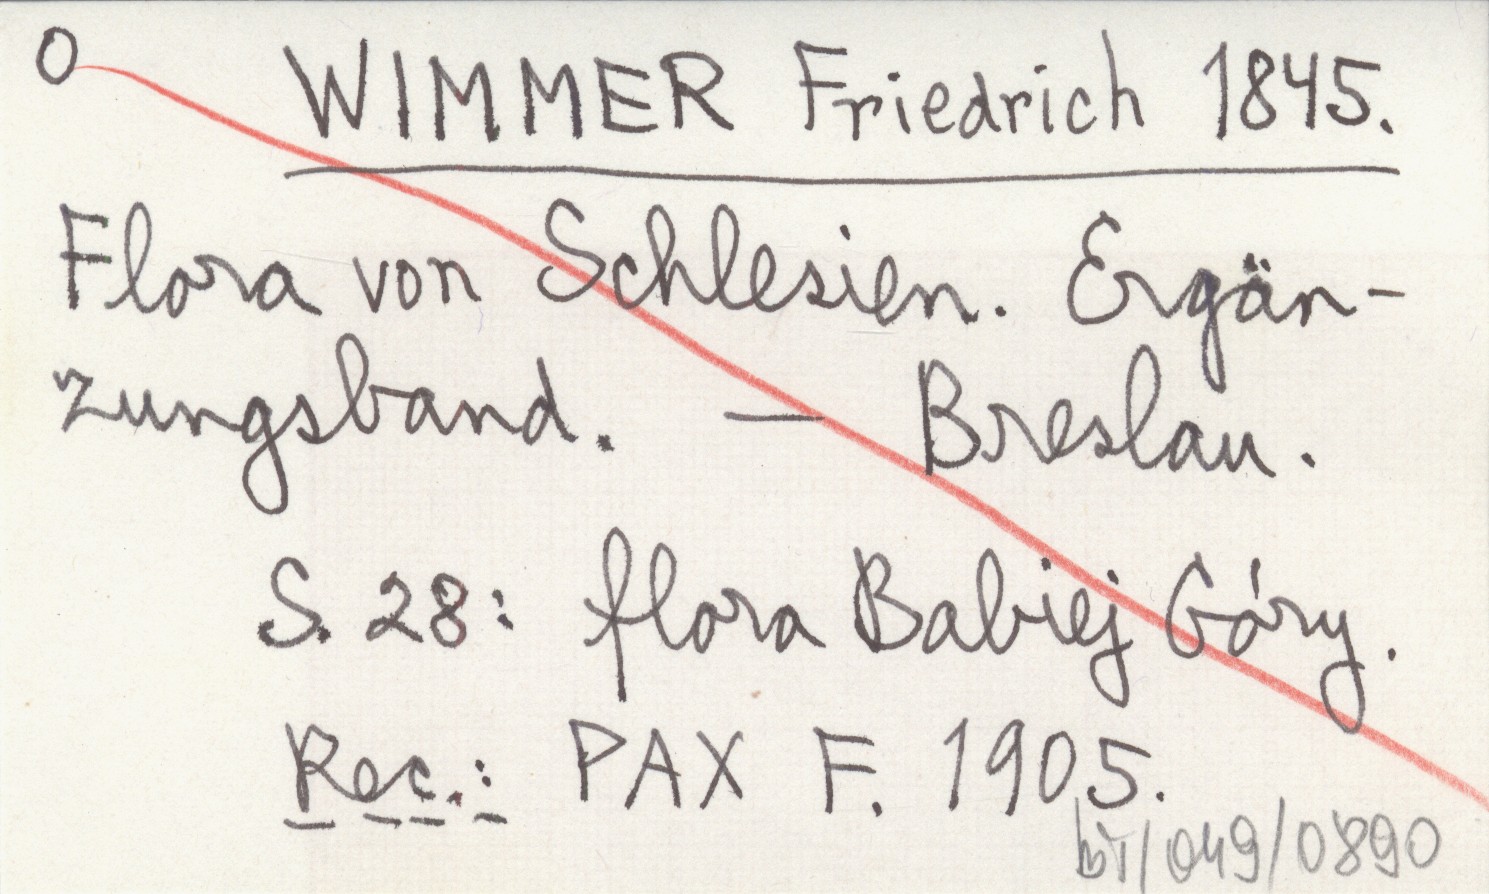 O WIMMER Friedrich 1845.
Flora von Schlesien. Ergän-
zungsband. — Breslau.
S. 28: flora Babiej Góry.
Rec.: PAX F. 1905.
bT/049/0890